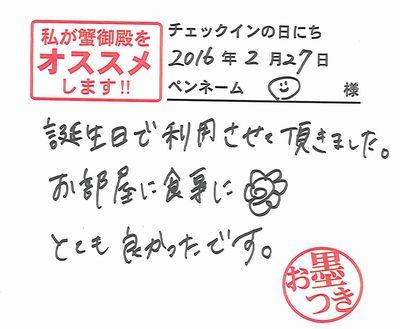 私が蟹御殿を
オススメ
します!!
チェックインの日にち
2016年2月27日
ペンネーム 様
誕生日で利用させて頂きました。
お部屋に食事に
とても良かったです。
お墨つき